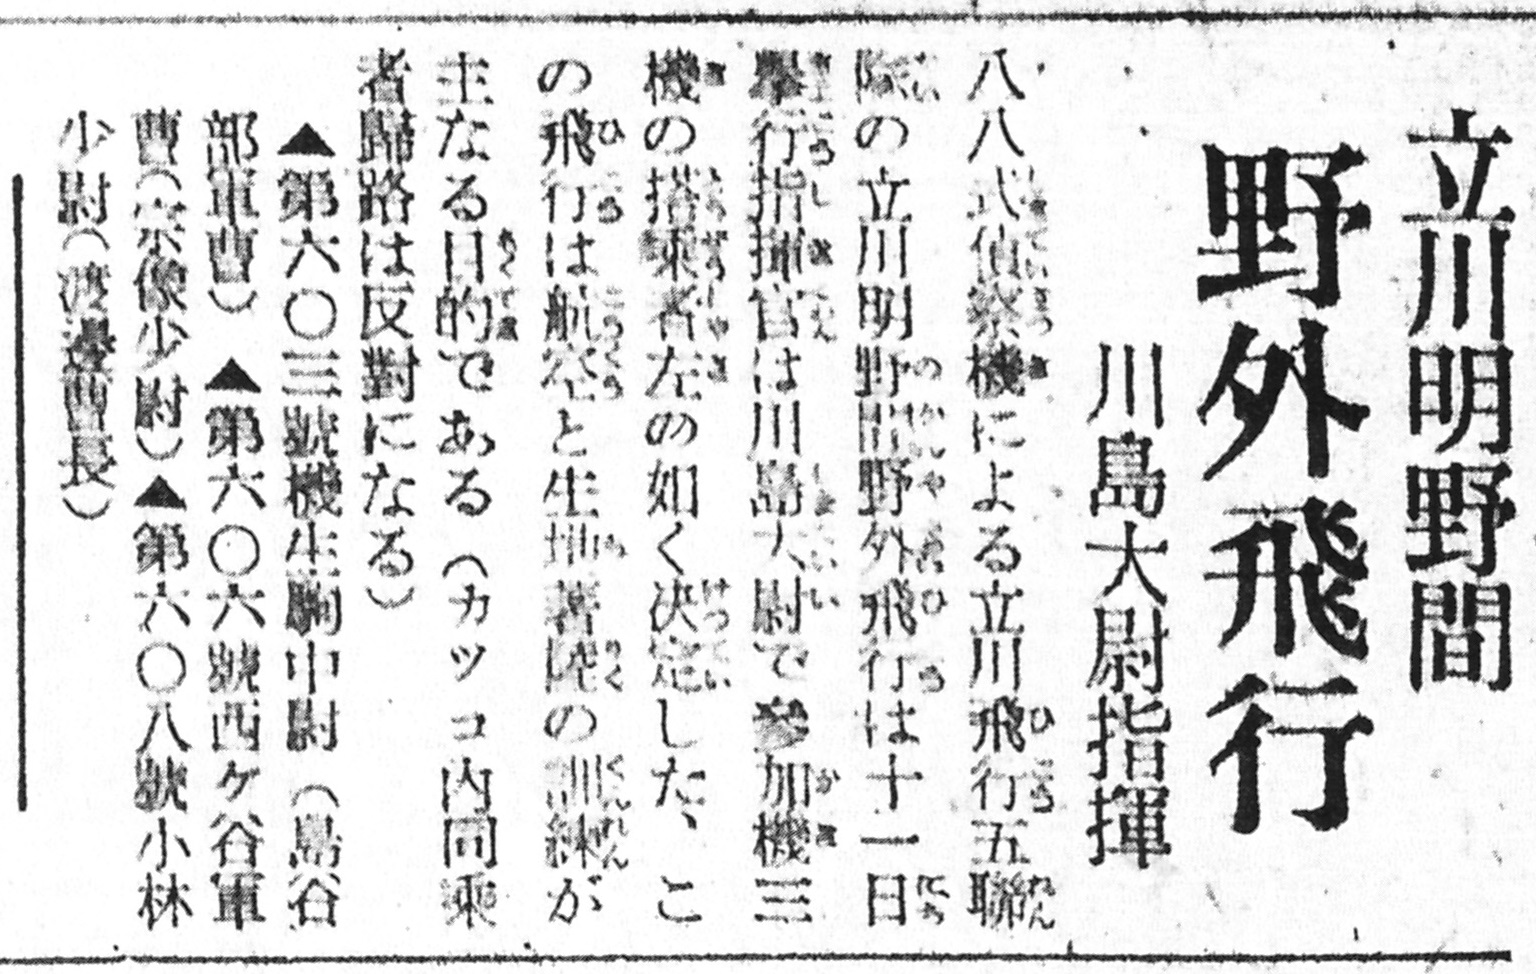 立川明野間
野外飛行
川島大尉指揮
八八式偵察機による立川飛行五聯
隊の立川明野間野外飛行は十一日
擧行指揮官は川島大尉で參加機三
機の搭乘者左の如く決定した、こ
の飛行は航空と生地著陸の訓練が
主なる目的である（カッコ內同乘
者歸路は反對になる）
▲第六〇三號機生駒中尉（島谷
部軍曹）▲第六〇六號西ケ谷軍
曹（宗像少尉）▲第六〇八號小林
少尉（渡邊曹長）